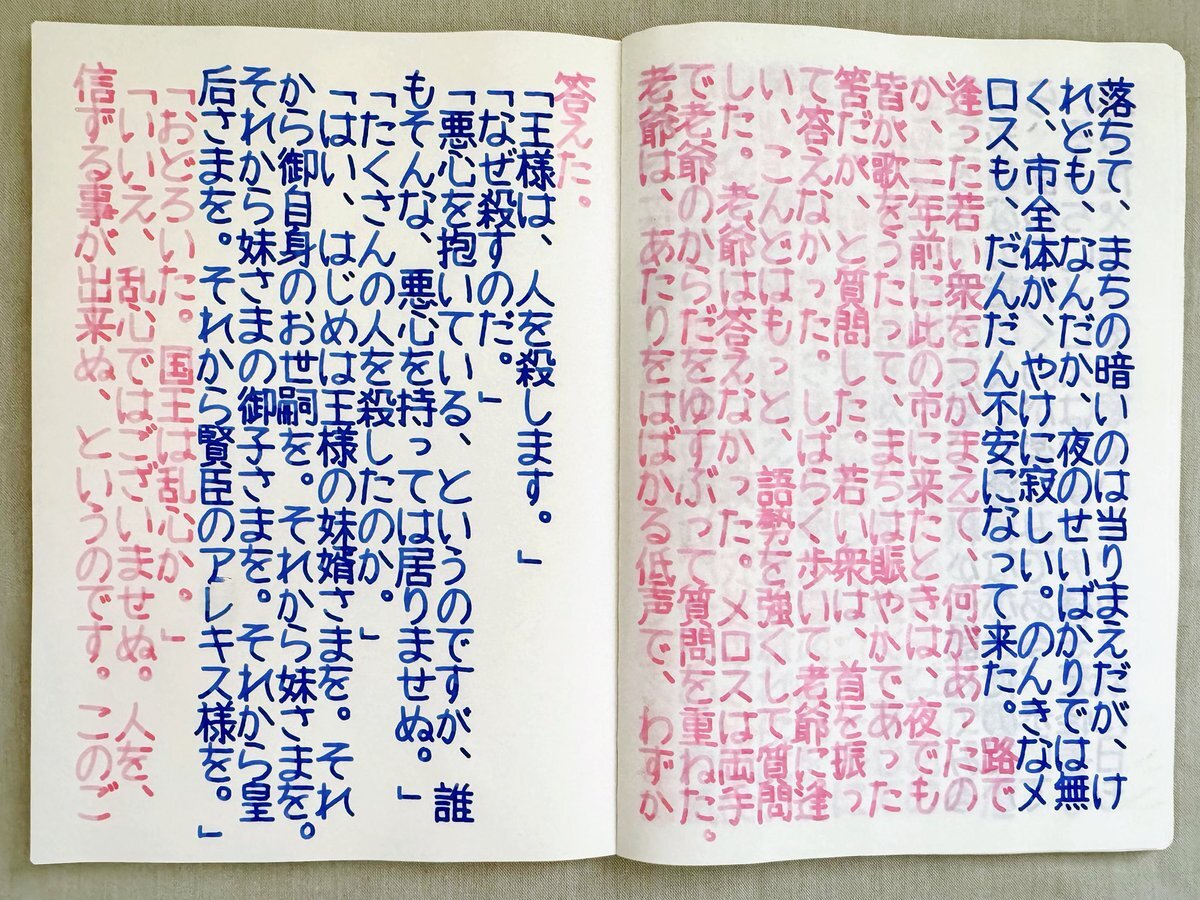 落ちて、まちの暗いのは当りまえだが、け
れども、なんだか、夜のせいばかりでは無
く、市全体が、やけに寂しい。のんきなメ
ロスも、だんだん不安になって来た。路で
逢った若い衆をつかまえて、何があったの
か、二年前に此の市に来たときは、夜でも
皆が歌をうたって、まちは賑やかであった
筈だが、と質問した。若い衆は、首を振っ
て答えなかった。しばらく歩いて老爺に逢
い、こんどはもっと、語勢を強くして質問
した。老爺は答えなかった。メロスは両手
で老爺のからだをゆすぶって質問を重ねた。
老爺は、あたりをはばかる低声で、わずか
答えた。
「王様は、人を殺します。」
「なぜ殺すのだ。」
「悪心を抱いている、というのですが、誰
もそんな、悪心を持っては居りませぬ。」
「たくさんの人を殺したのか。」
「はい、はじめは王様の妹婿さまを。それ
から御自身のお世嗣を。それから妹さまを。
それから妹さまの御子さまを。それから皇
后さまを。それから賢臣のアレキス様を。」
「おどろいた。国王は乱心か。」
「いいえ、乱心ではございませぬ。人を、
信ずる事が出来ぬ、というのです。このご